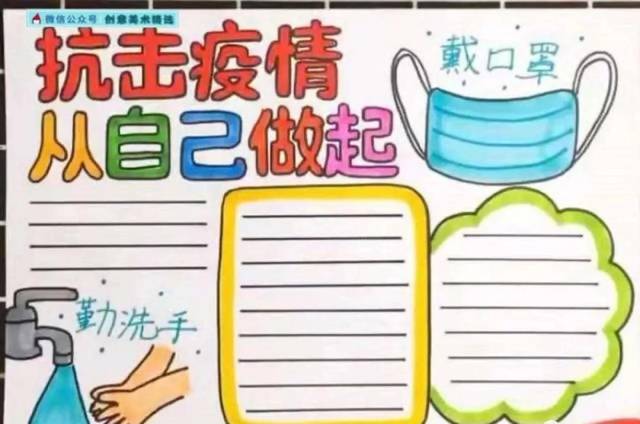 微信公众号 创意美术精选
抗击疫情
从自己做起
戴口罩
勤洗手